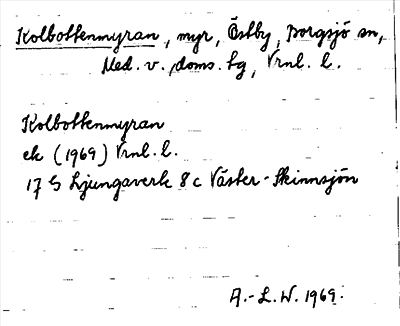 Kolbottenmyran, myr, Östby, Borgsjö sn,
Med. v. doms. tg, Vrnl. l.
Kolbottenmyran
ek (1969) Vrnl. l.
17 G Ljungaverk 8 c Väster-Skinnsjön
A.-L.W. 1969.